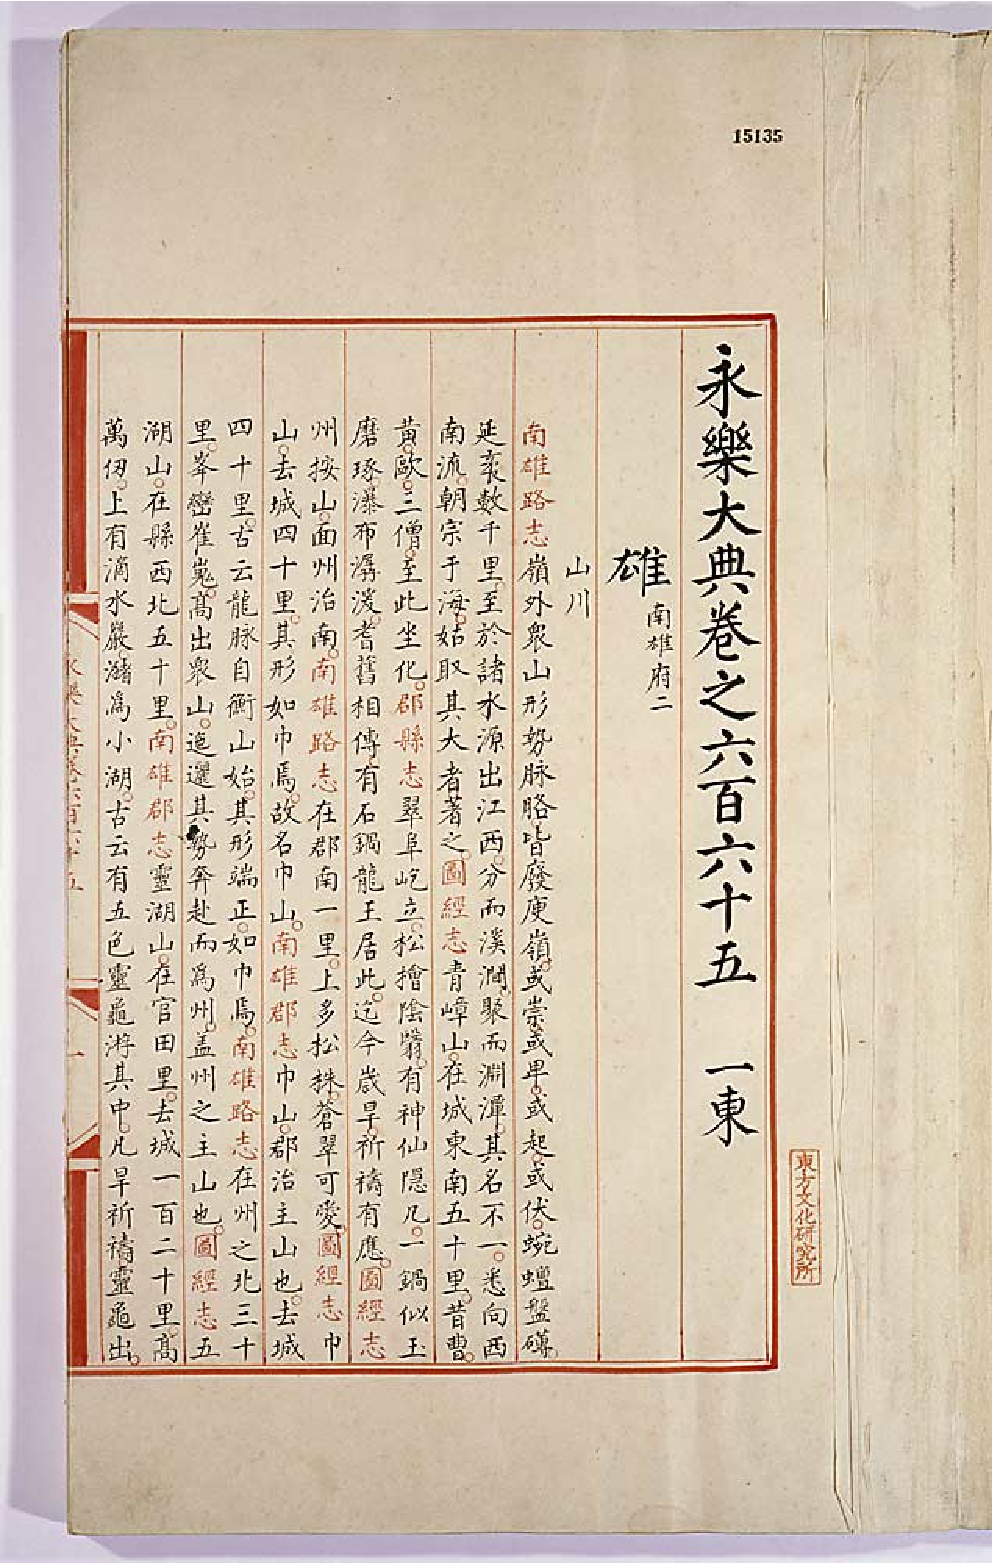 15135
永樂大典卷之六百六十五 一東
雄
南雄府二
山川
南雄路志嶺外衆山形勢脉胳皆廢庾嶺或崇或甲或起或伏蜿蟺盤礴
延袤數千里至於諸水源出江西分而溪澗聚而淵潭其名不一悉向西
南流朝宗于海姑取其大者著之圖經志青嶂山在城東南五十里昔曹
黃歐三僧至此坐化郡縣志翠阜屹立松檜陰翳有神仙隱几一鍋似玉
磨琢瀑布潺湲耆舊相傳有石鍋龍王居此迄今歲旱祈禱有應圖經志
州按山面州治南南雄路志在郡南一里上多松株蒼翠可愛圖經志巾
山去城四十里其形如巾焉故名巾山南雄郡志巾山郡治主山也去城
四十里古云龍脉自衡山始其形端正如巾焉南雄路志在州之北三十
里峯巒崔嵬高出衆山迤邐其勢奔赴而爲州盖州之主山也圖經志五
湖山在縣西北五十里南雄郡志靈湖山在官田里去城一百二十里高
萬仞上有滴水巖瀦爲小湖古云有五色靈龜游其中凡旱祈禱靈龜出
永樂大典卷六百六十五
一
東方文化研究所